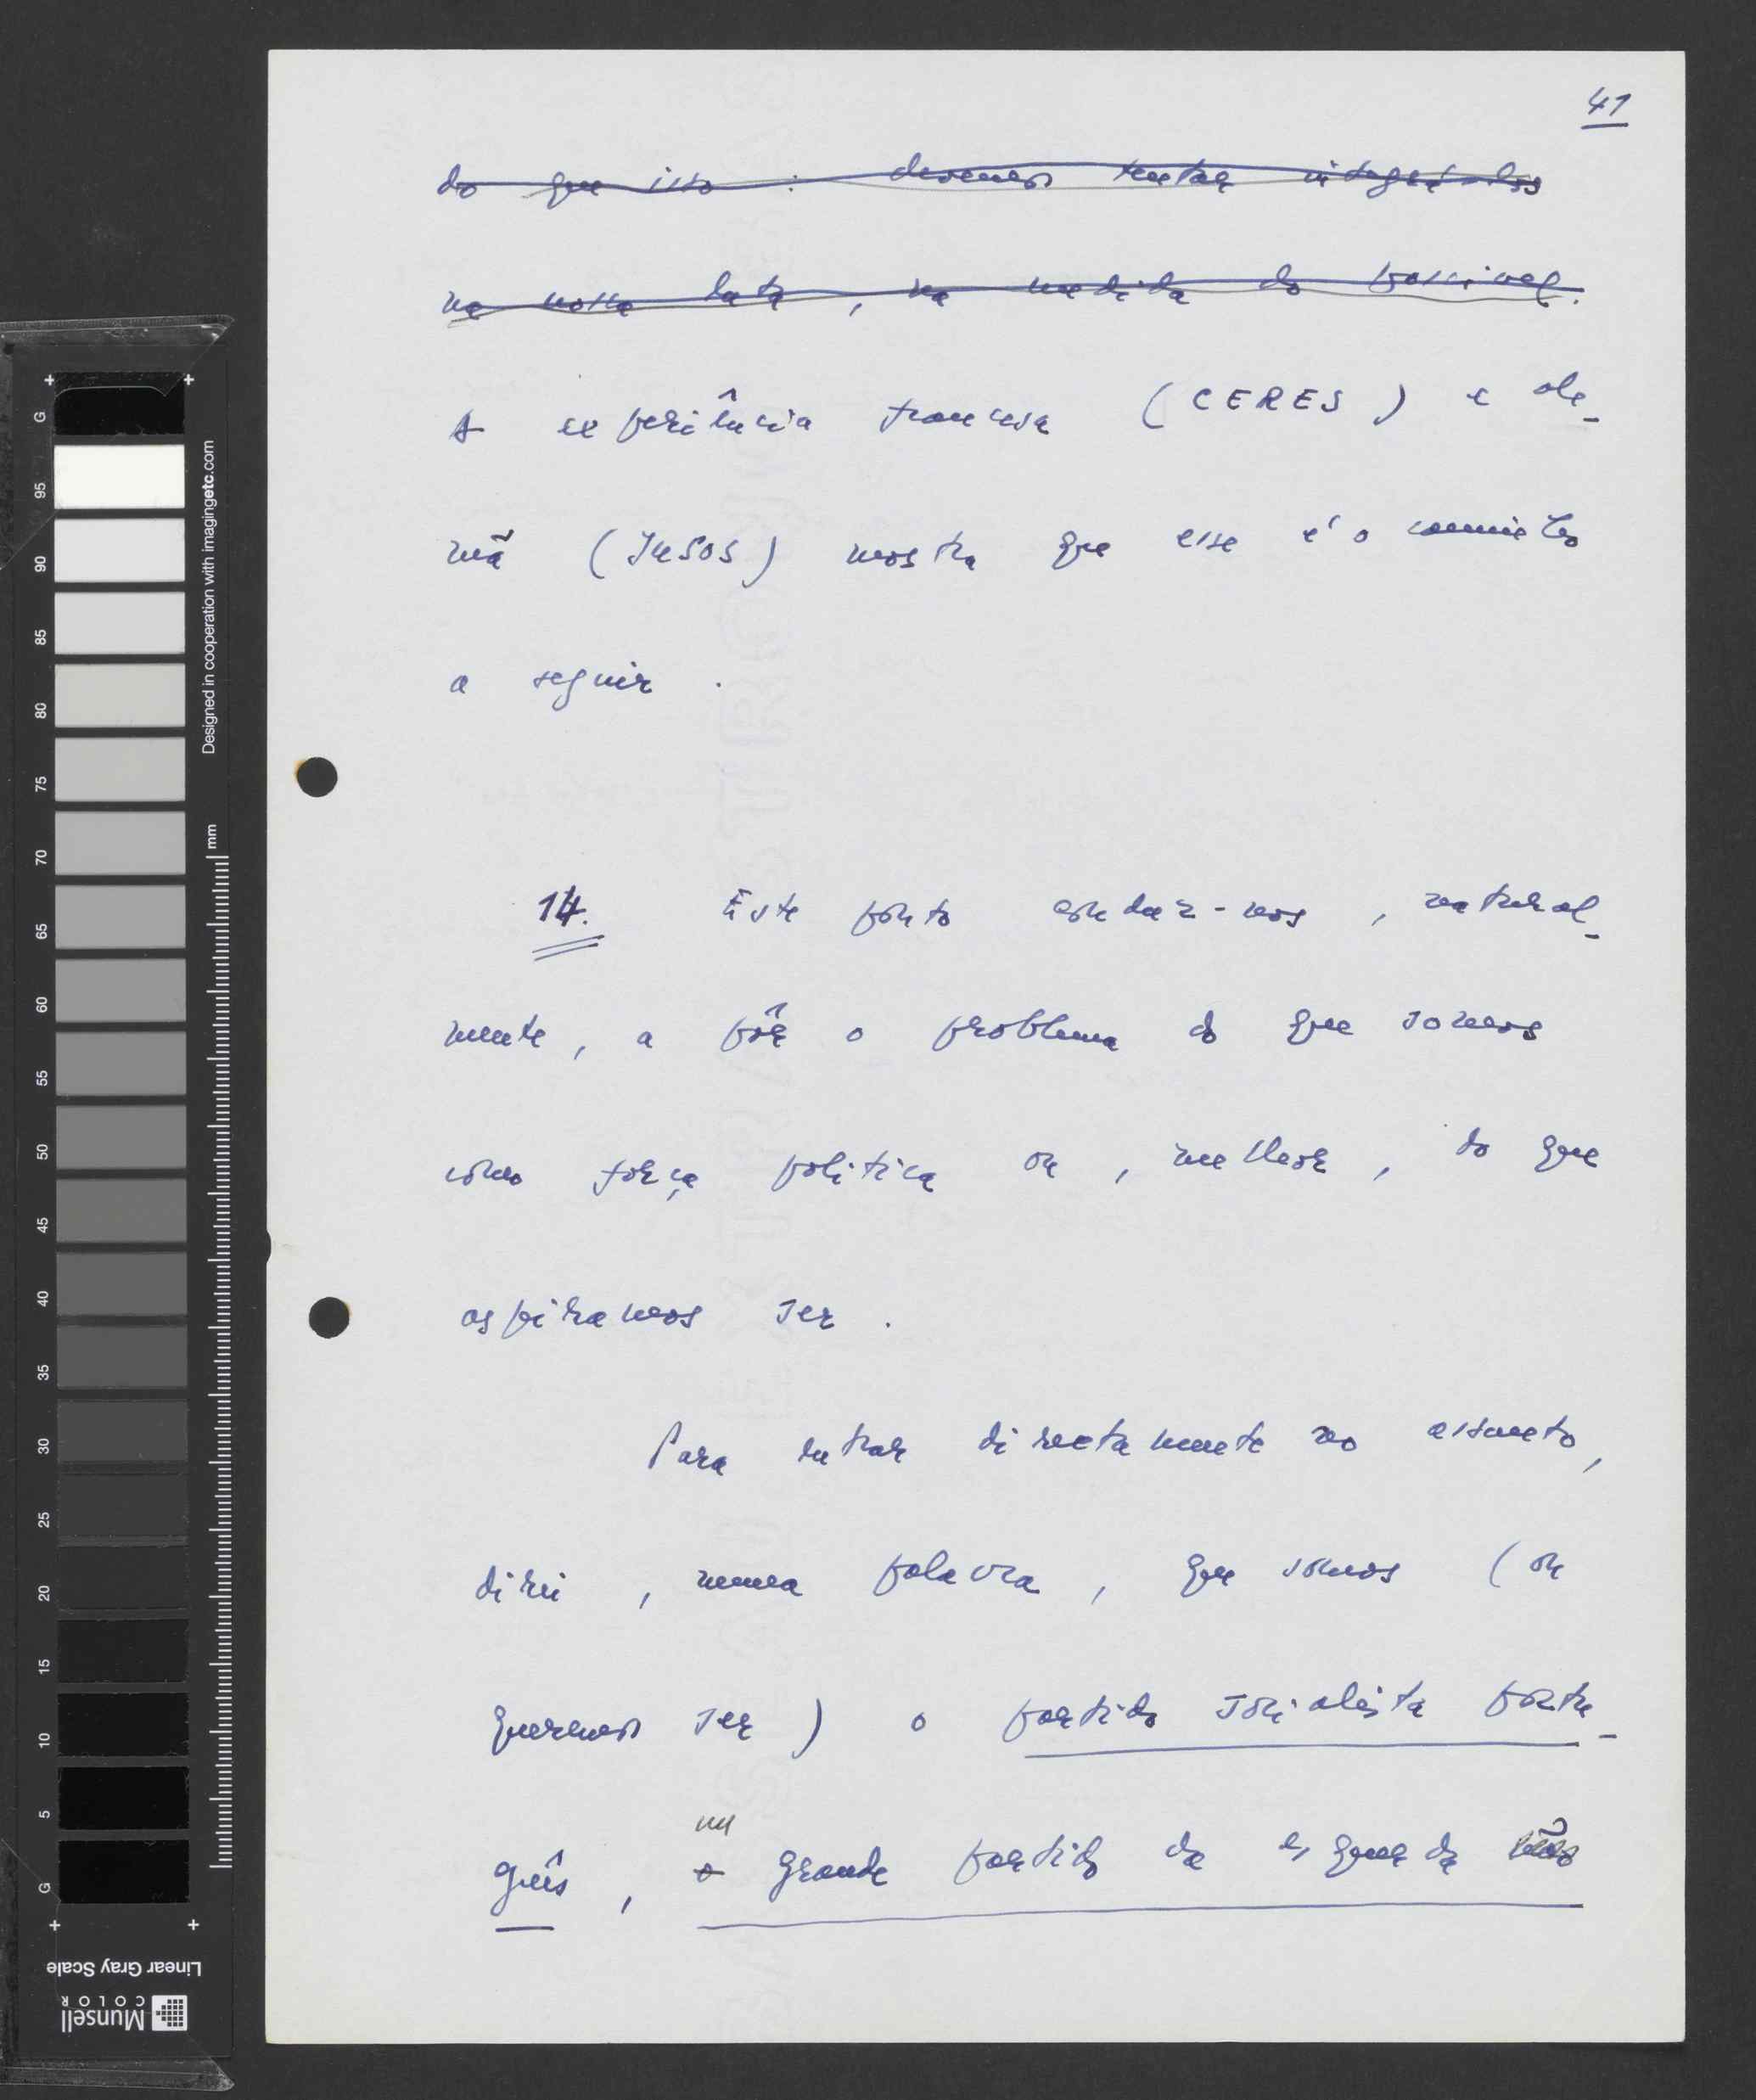 41
do que isso : devemos tentar integrá-los
na nossa luta , na medida do possivel.
A experiência francesa (CERES) e ale-
mã (JUSOS) mostra que esse é o caminho
a seguir .
14. Este ponto conduz-nos , natural-
mente , a pôr o problema do que somos
como força politica ou , melhor , do que
aspiramos ser .
Para entrar directamente no assunto,
direi , numa palavra , que somos (ou
queremos ser ) o partido socialista portu-
um
guês , o grande partido da esquerda não
G 95 90 85 80 75 70 65 60 55 50 45 40 35 30 25 20 15 10 5 G
Designed in cooperation with imagingetc.com
mm
Linear Gray Scale
Munsell
COLOR